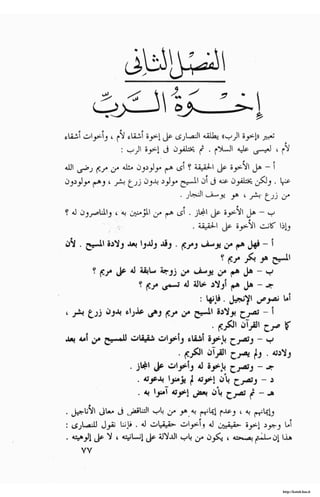 الفصل الثانى
إخوة الرب
تعبير «إخوة الرب» يطلقه النصارى على إخوة أشقاء لأم ، وأخوات أشقاء
لأم ، لعيسى عليه السلام . ثم يختلفون فى إخوة الرب :
أ – هل الأخوة على الحقيقة ؟ أى هم مولودون مثله من مريم رضى الله
عنها . ولكن يختلفون عنه فى أن المسيح مولود بدون زرع بشر ، وهم مولودون
من زرع بشر ، هو يوسف النجار .
ب – هل الأخوة على المجاز . أى هم من المؤمنين به ، والمناصرون له ؟
وإذا كانت الأخوة على الحقيقة .
أ – فهل هم من يوسف ومريم . وقد ولدوا بعد ولادة المسيح . لأن
المسيح هو بكر مريم ؟
ب – هل هم من يوسف من زوجة سابقة له على مريم ؟
جـ – هل هم أولاد خالة له تسمى مريم ؟
أما نصوص الإنجيل . فإنها :
أ – تصرح بولادة المسيح من مريم وهى عذراء بدون زرع بشر ،
كما صرح القرآن الكريم .
ب – وتصرح بإخوة أشقاء وأخوات شقيقات للمسيح من أمه بعد
ولادته . ولم يصرح القرآن الكريم .
جـ – وتصرح بإخوة له وأخوات على المجاز .
د – وتصرح بأن إخوته لم يؤمنوا بدعوته .
هـ – ثم تصرح بأن بعض إخوته آمنوا به .
وإيمانهم به ، وعدم إيمانهم به هو من باب التناقض فى معانى الأناجيل .
أما وجود إخوة حقيقيين له وأخوات حقيقيات له . فإننا نقول للنصارى :
هذا إن سلمتم بصحته ، يكون من باب الدلالة على إنسانيته ، لا على إلوهيته .
٧٧
http://kotob.has.it